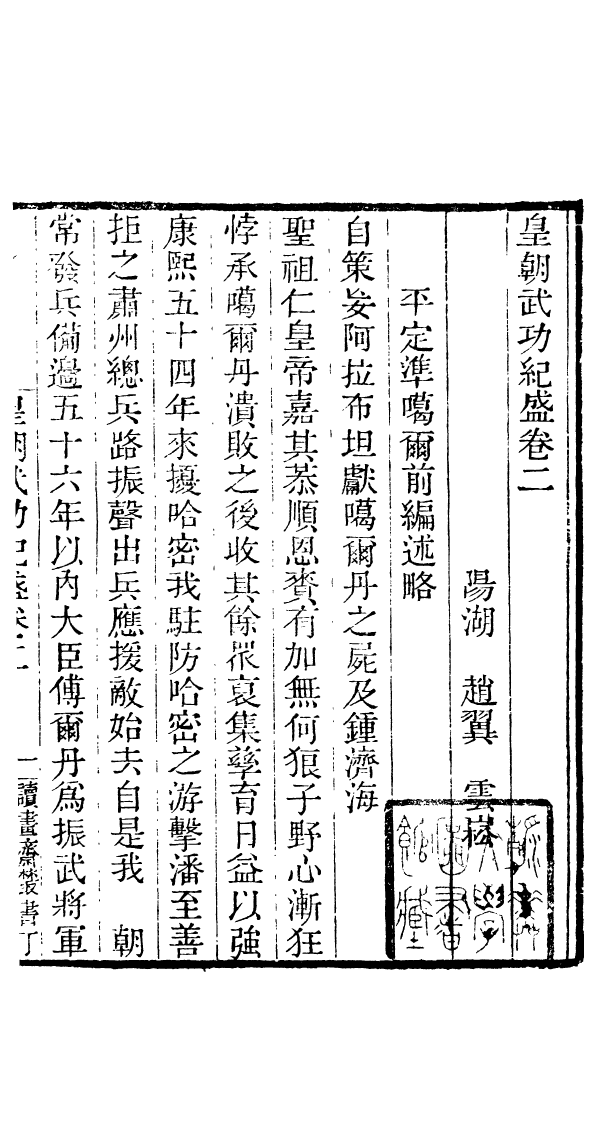 皇朝武功紀盛卷二
陽湖 趙翼 雲崧
平定準噶爾前編述略
自策妄阿拉布坦獻噶爾丹之屍及鍾濟海
聖祖仁皇帝嘉其恭順恩賚有加無何狼子野心漸狂
悖承噶爾丹潰敗之後收其餘眾裒集孳育日益以強
康熙五十四年來擾哈密我駐防哈密之游擊潘至善
拒之肅州總兵路振聲出兵應援敵始去自是我 朝
常發兵備邊五十六年以內大臣傅爾丹為振武將軍
皇朝武功紀盛卷二 一 讀畫齋叢書丁